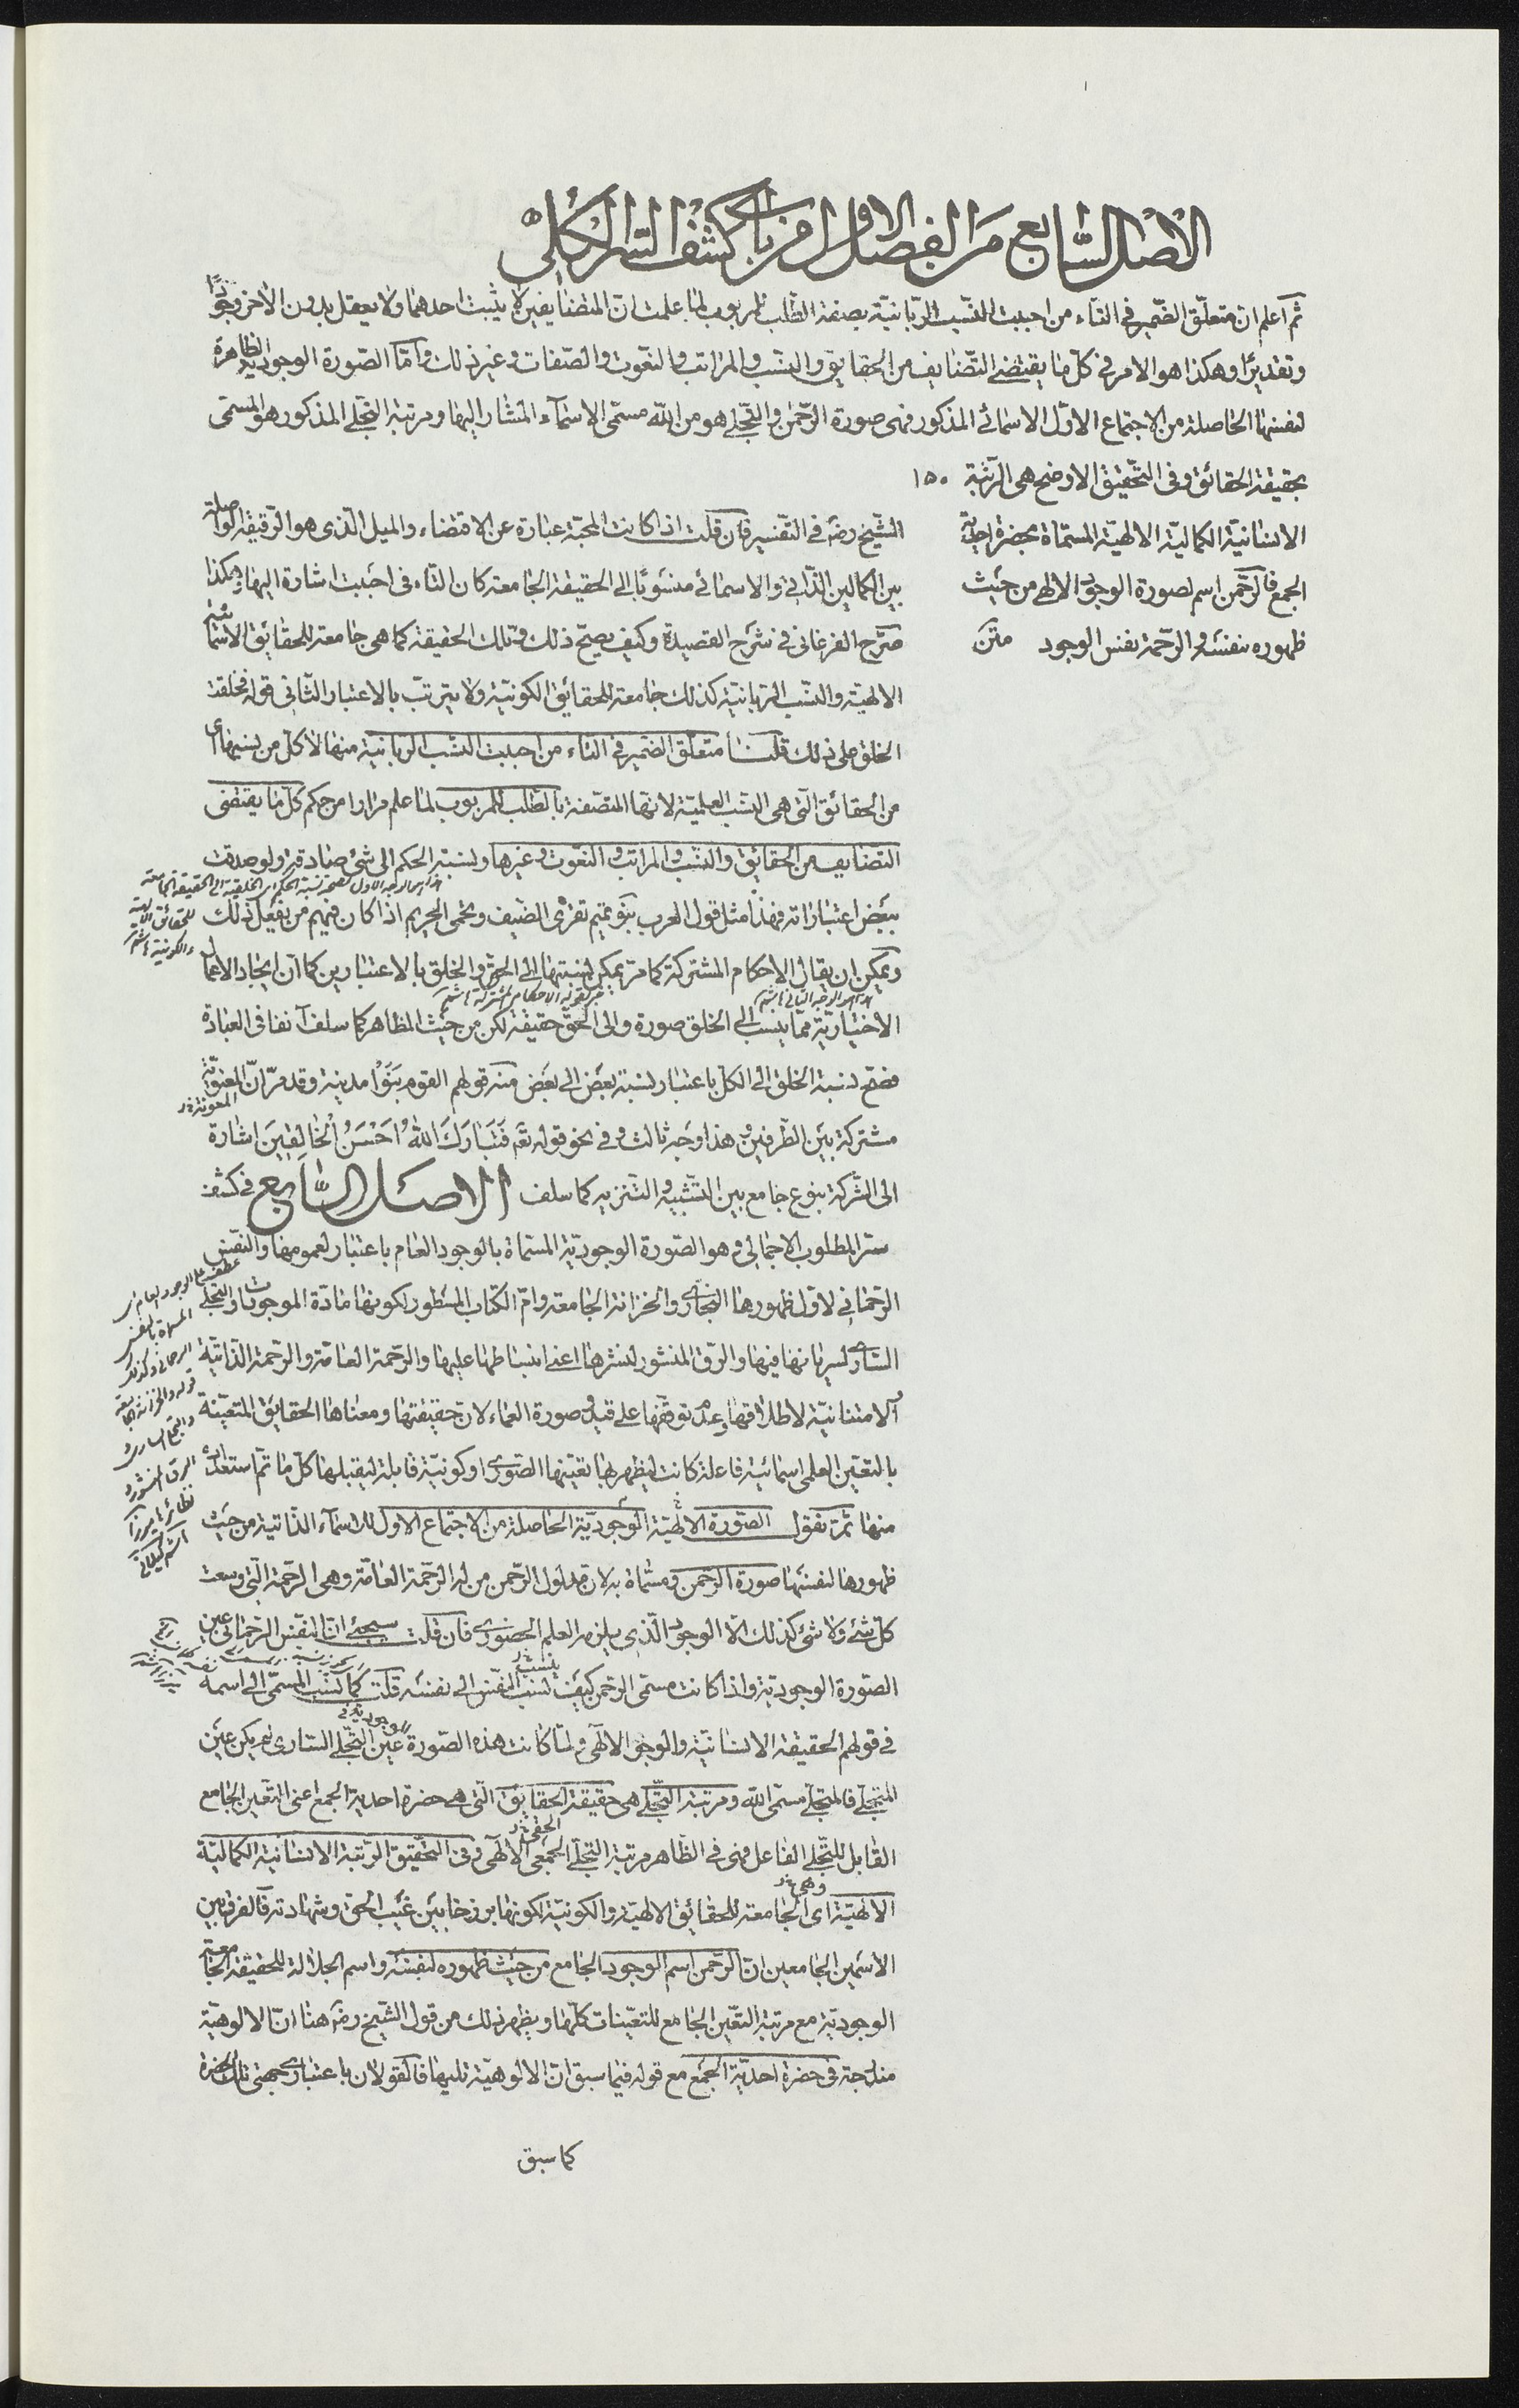 الاصل السّابع من الفصل الاول من باب كشف السّر الكلّى
ثم اعلم ان متعلّق الضّمير فى التاء من احببت للنّسب الرّبانيّة بصفة الطّلب للمربوب لما علمت انّ المتضايفين لا يثبت احدهما ولا يعقل بدون الآخر وجودًا
وتقديرًا وهكذا هو الامر فى كلّ ما يقتضى التّضايف من الحقايق والنّسب والمراتب والنّعوت والصّفات وغير ذلك وامّا الصّورة الوجوديّة الظاهرة
لنفسها الحاصلة من الاجتماع الاوّل الاسمائى المذكور فهى صورة الرّحمن والتّجلى هو من اللّه مسمّى الاسمآء المشار اليها ومرتبة التّجلى المذكور هو المسمّى
بحقيقة الحقائق وفى التّحقيق الاوضح هى الرّتبة ١٥٠
الانسانيّة الكماليّة الالهيّة المسمّاة بحضرة احديّة
الجمع فالرّحمن اسم لصورة الوجود الالهى من حيث
ظهوره بنفسه والرّحمة نفس الوجود متن
الشّيخ رضه فى التّفسير فان قلت اذا كانت المحبّة عبارة عن الاقتضاء والميل الّذى هو الرّقيقة الواصلة
بين الكمالين الذّاتى والاسمائى منسوبًا الى الحقيقة الجامعة كان التاء فى احببت اشارة اليها وهكذا
صرّح الفرغانى فى شرح القصيدة وكيف يصحّ ذلك وتلك الحقيقة كما هى جامعة للحقائق الاسمائية
الالهيّة والنّسب الرّبانيّة كذلك جامعة للحقائق الكونيّة ولا يترتب بالاعتبار الثّانى قوله فخلقت
الخلق على ذلك قلنا متعلّق الضمير فى التاء من احببت النّسب الربانيّة منها لا كلّ من نسبها اى
من الحقائق الّتى هى النّسب العلميّة لانها المتصفة بالطّلب للمربوب لما علم مرارا من حكم كلّ ما يقتضى
التّضايف من الحقايق والنّسب والمراتب والنّعوت وغيرها ونسبة الحكم الى شئ صادقة ولو صدقت
هذا هو الوجه الاول لصحة نسبة الحكم اى الخلقية الى الحقيقة الجامعة
للحقائق الالهية
والكونية هاشم
ببعض اعتباراته فهذا مثل قول العرب بنو تميم تقرى الضّيف وتحمى الحريم اذا كان فيهم من يفعل ذلك
ويمكن ان يقال الاحكام المشتركة كما مرّ يمكن نسبتها الى الحقّ والخلق بالاعتبارين كما انّ ايجاد الاعمال
هذا هو الوجه الثانى هاشم
خبر لقوله الاحكام المشتركة هاشم
الاختياريّة ممّا ينسب الى الخلق صورة والى الحقّ حقيقة لكن من حيث المظاهر كما سلف آنفا فى العبادة
فصحّ نسبة الخلق الى الكلّ باعتبار نسبة بعض الى بعض منه قولهم القوم بنوا مدينة وقد مرّ انّ المعنويّة
المعونة خ ر
مشتركة بين الطّرفين وهذا وجه ثالث وفى نحو قوله تعه فَتَبَارَكَ اللهُ اَحْسَنُ الْخَالِقِينَ اشارة
الى الشّركة بنوع جامع بين التّشبيه والتّنزيه كما سلف الاصل السّابع فى كشف
سرّ المطلوب الاجمالى وهو الصّورة الوجوديّة المسمّاة بالوجود العام باعتبار لعمومها والنّفس
الرّحمانى لاوّل ظهورها البخارى والخزانة الجامعة وامّ الكتاب المسطور لكونها مادّة الموجودات والتّجلى
السّارى لسريانها فيها والرّق المنشور لنشرها اعنى انبساطها عليها والرّحمة العامّة والرّحمة الذّاتيّة
الامتنانيّة لاطلاقها وعدم توقّفها على قيد وصورة العماء لانّ حقيقتها ومعناها الحقايق المتعيّنة
بالتعيّن العلمى اسمائيّة فاعلة كانت ليظهر لها تعيّنها الصّورى او كونيّة قابلة ليقبلها كلّ ما تمّ استعداده
عطف على الوجود العام اى
المسماة بالنفس
الرحمانى وكذلك
قوله والخزانة الجامعة
والتجلى السارى و
الرق المنشور و
نظائرها ميرزا
هاشم گيلانى
منها ثمّ نقول الصّورة الالهيّة الوجوديّة الحاصلة من الاجتماع الاول للاسمآء الذّاتية من حيث
ظهورها لنفسها صورة الرّحمن ومسمّاة به لانّ مدلول الرّحمن من له الرّحمة العامّة وهى الرّحمة الّتى وسعت
كلّ شئ ولا شئ كذلك الّا الوجود الّذى يلزمه العلم الحضورى فان قلت سيجئ انّ النّفس الرّحمانى عين
الصّورة الوجوديّة واذا كانت مسمّى الرّحمن كيف ينسب النّفس الى نفسه قلت كما ينسب المسمّى الى اسمه
فى قولهم الحقيقة الانسانيّة والوجود الالهى ولمّا كانت هذه الصّورة الوجوديّة عين التّجلى السّارى لم يكن عين
المتجلى فالمتجلى مسمّى اللّه ومرتبة التّجلى هى حقيقة الحقايق الّتى هى حضرة احديّة الجمع اعنى التّعين الجامع
القابل للتّجلى الفاعل فهى فى الظّاهر مرتبة التّجلى الجمعى الالهى وفى التّحقيق الرّتبة الانسانيّة الكماليّة
الالهيّة اى الجامعة للحقائق الالهيّة والكونيّة لكونها برزخا بين غيب الحقّ وشهادته فالفرق بين
الاسمين الجامعين انّ الرّحمن اسم الوجود الجامع من حيث ظهوره لنفسه واسم الجلالة للحقيقة الجامعة
الوجوديّة مع مرتبة التّعيّن الجامع للتعيّنات كلّها ويظهر ذلك من قول الشّيخ رضه هنا انّ الالوهيّة
مندرجة فى حضرة احديّة الجمع مع قوله فيما سبق انّ الالوهيّة تليها فالقولان باعتبارى جهتى تلك الحضرة
كما سبق